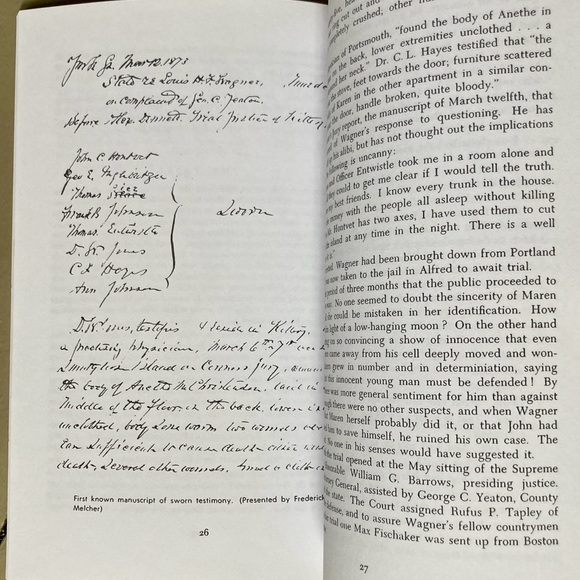 York Ss. Mar 12. 1873
State vs Louis H. F. Wagner,
on complaint of Geo. C. Yeaton.
Before Alex. Dennett, Trial Justice of Kittery
John C Hontvet
Geo E. Ingbertzer
Thomas
Frank B Johnson
Thomas Entwistle
D. W. Jones
C L Hayes
Ann Johnson
Sworn
D. W. Jones, testifies I reside in Kittery,
a practising Physician, March 6th
Smuttynose Island on Coroners Jury,
the body of Anethe M. Christensen, laid in
Middle of the floor, on the back, lower
unclothed, body bore some two wounds
sufficient to cause death either
death. Several other wounds,
First known manuscript of sworn testimony. (Presented by Frederick
Melcher)
26
cut out and
crushed; other
of Portsmouth, "found the body of Anethe in
on the back, lower extremities unclothed . . . a
her neck." Dr. C. L. Hayes testified that "the
stove, feet towards the door; furniture scattered
Karen in the other apartment in a similar con-
the door, handle broken, quite bloody."
they report, the manuscript of March twelfth, that
of Wagner's response to questioning. He has
his alibi, but has not thought out the implications
following is uncanny:
Officer Entwistle took me in a room alone and
they could to get me clear if I would tell the truth.
my best friends. I know every trunk in the house.
money with the people all asleep without killing
Hontvet has two axes, I have used them to cut
island at any time in the night. There is a well
Wagner had been brought down from Portland
now taken to the jail in Alfred to await trial.
period of three months that the public proceeded to
No one seemed to doubt the sincerity of Maren
she could be mistaken in her identification. How
light of a low-hanging moon? On the other hand
on so convincing a show of innocence that even
came away from his cell deeply moved and won-
grew in number and in determiniation, saying
this innocent young man must be defended! By
was more general sentiment for him than against
though there were no other suspects, and when Wagner
Maren herself probably did it, or that John had
to save himself, he ruined his own case. The
No one in his senses would have suggested it.
the trial opened at the May sitting of the Supreme
Honorable William G. Barrows, presiding justice.
Attorney General, assisted by George C. Yeaton, County
the state. The Court assigned Rufus P. Tapley of
defense, and to assure Wagner's fellow countrymen
trial one Max Fischaker was sent up from Boston
27